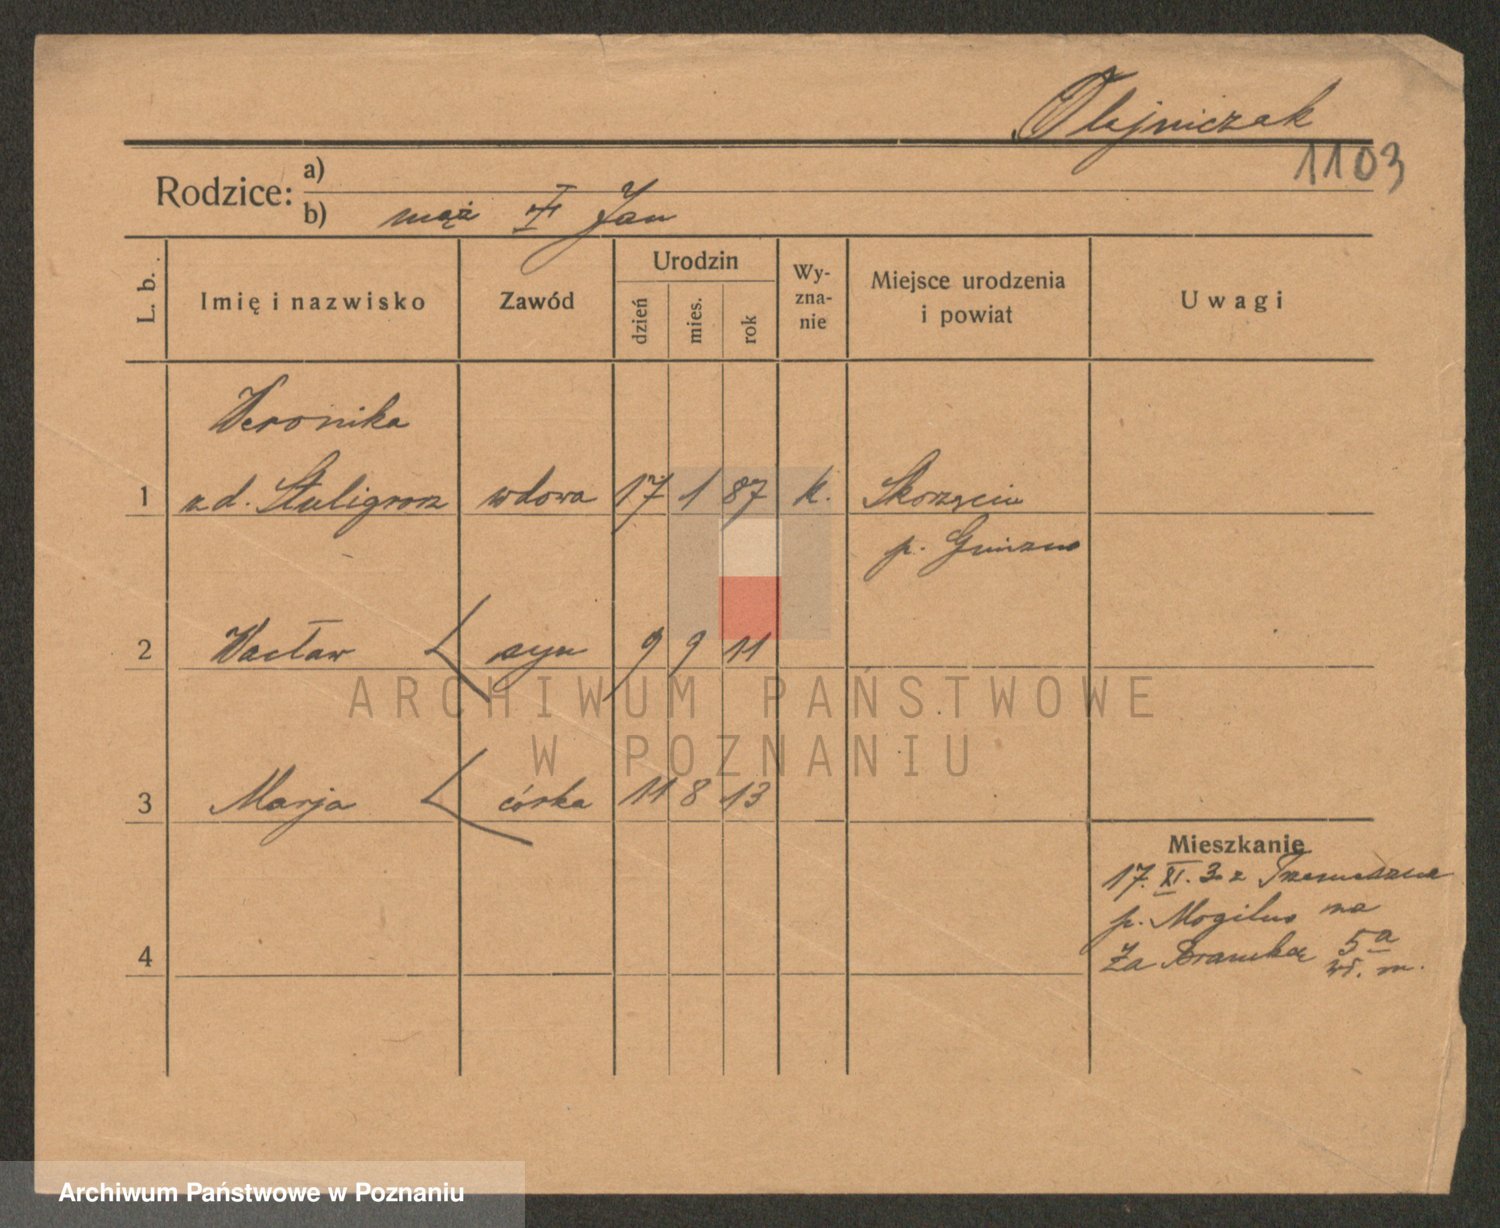 Olejniczak
1103
Rodzice:
a)
b) mąż Jan
L. b.
Imię i nazwisko
Zawód
Urodzin
dzień
mies.
rok
Wy-
zna-
nie
Miejsce urodzenia
i powiat
Uwagi
Weronika
1 zd. wdowa 17 1 87 k. Skorzęcin
p. Gniezno
2 Wacław syn 9 9 11
ARCHIWUM PAŃSTWOWE
W POZNANIU
3 Marja córka 11 8 13
Mieszkanie
17. XI. z Trzemeszna
p. Mogilno na
4 Za Bramką 5a
m.
Archiwum Państwowe w Poznaniu